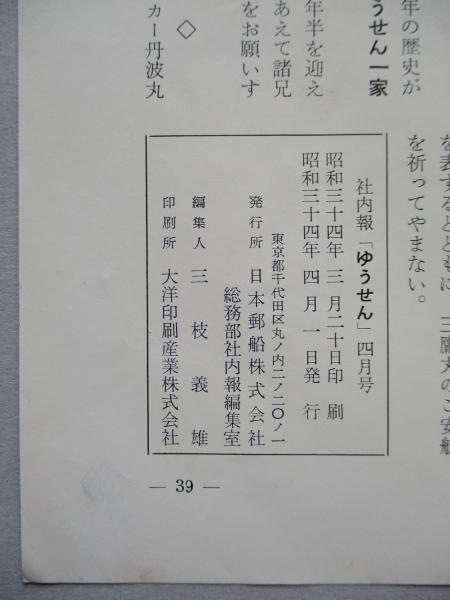 年の歴史が
うせん一家
年半を迎え
あえて諸兄
をお願いす
◇
カー丹波丸
を表するとともに、三鷹丸のご安航
を祈ってやまない。
社内報「ゆうせん」四月号
昭和三十四年三月二十日印刷
昭和三十四年四月一日発行
東京都千代田区丸ノ内二ノ二〇ノ一
発行所 日本郵船株式会社
総務部社内報編集室
編集人 三枝義雄
印刷所 大洋印刷産業株式会社
— 39 —